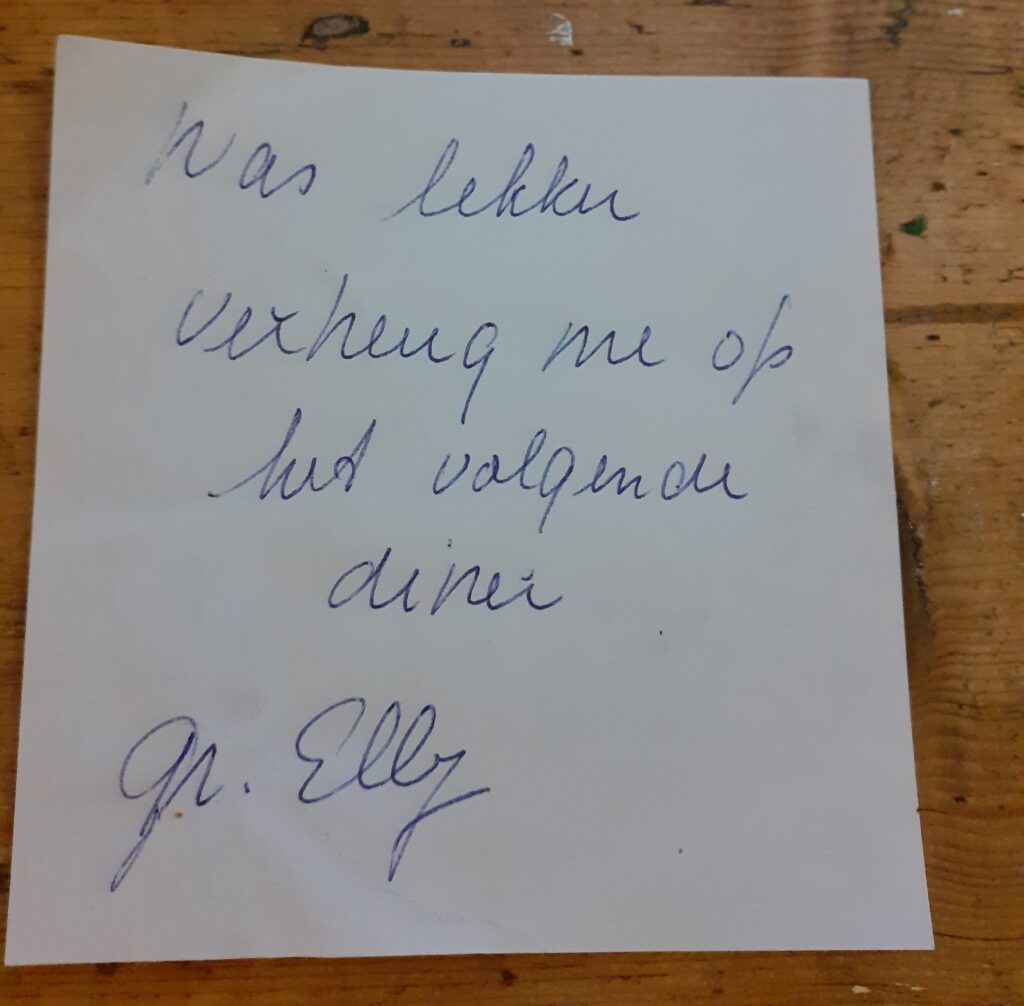 Was lekker
verheug me op
het volgende
diner
Gr. Elly